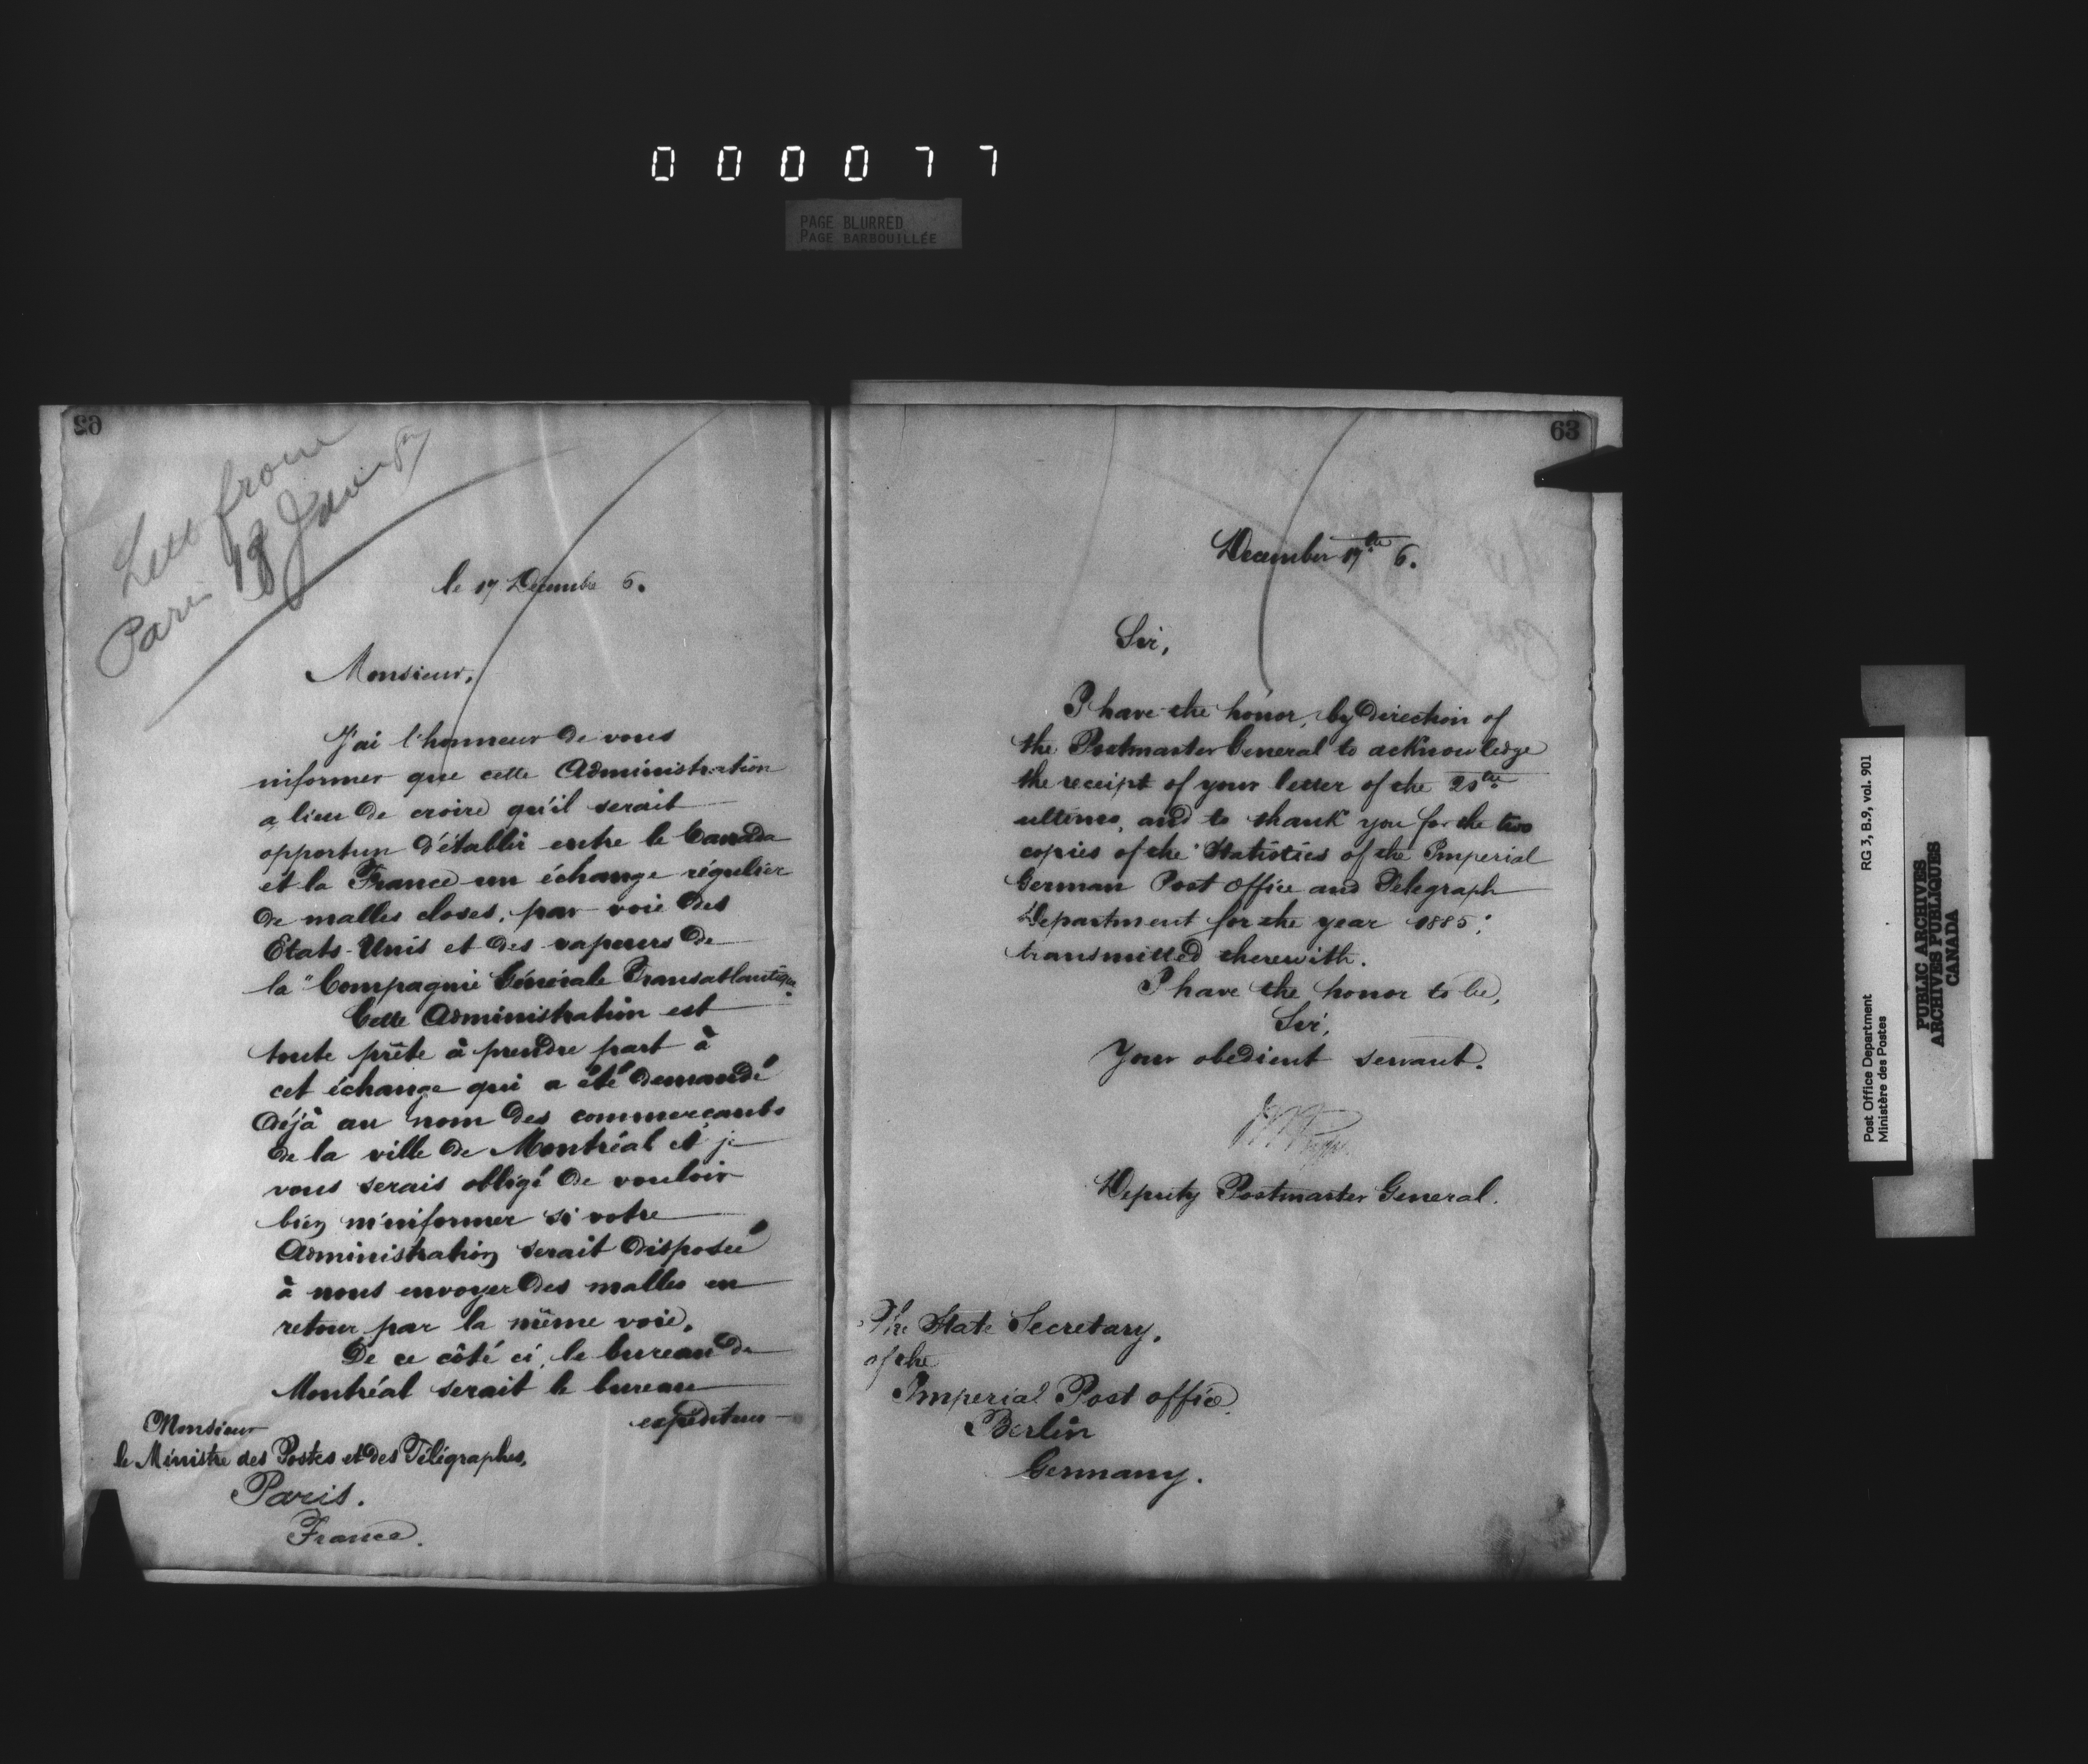 000077
PAGE BLURRED
PAGE BARBOUILLÉE
62
from
Paris 18 Jan
le 17 Decembre 6.
Monsieur,
J'ai l'honneur de vous
informer que cette Administration
a lieu de croire qu'il serait
opportun d'établir entre le Canada
et la France un échange régulier
de malles closes, par voie des
Etats-Unis et des vapeurs de
la "Compagnie Générale Transatlantique"
Cette Administration est
toute prête à prendre part à
cet échange qui a été demandé
déjà au nom des commerçants
de la ville de Montréal et je
vous serais obligé de vouloir
bien m'informer si votre
Administration serait disposée
à nous envoyer des malles en
retour par la même voie.
De ce côté ci, le bureau de
Montréal serait le bureau
expéditeur
Monsieur
le Ministre des Postes et des Télégraphes,
Paris.
France.
63
December 17th 6.
Sir,
I have the honor, by direction of
the Postmaster General to acknowledge
the receipt of your letter of the 25th
ultimo, and to thank you for the two
copies of the Statistics of the Imperial
German Post Office and Telegraph
Department for the year 1885;
transmitted therewith.
I have the honor to be,
Sir,
Your obedient servant.
Deputy Postmaster General.
The State Secretary,
of the
Imperial Post office
Berlin
Germany.
Post Office Department RG 3, B.9, vol. 901
Ministère des Postes
PUBLIC ARCHIVES
ARCHIVES PUBLIQUES
CANADA